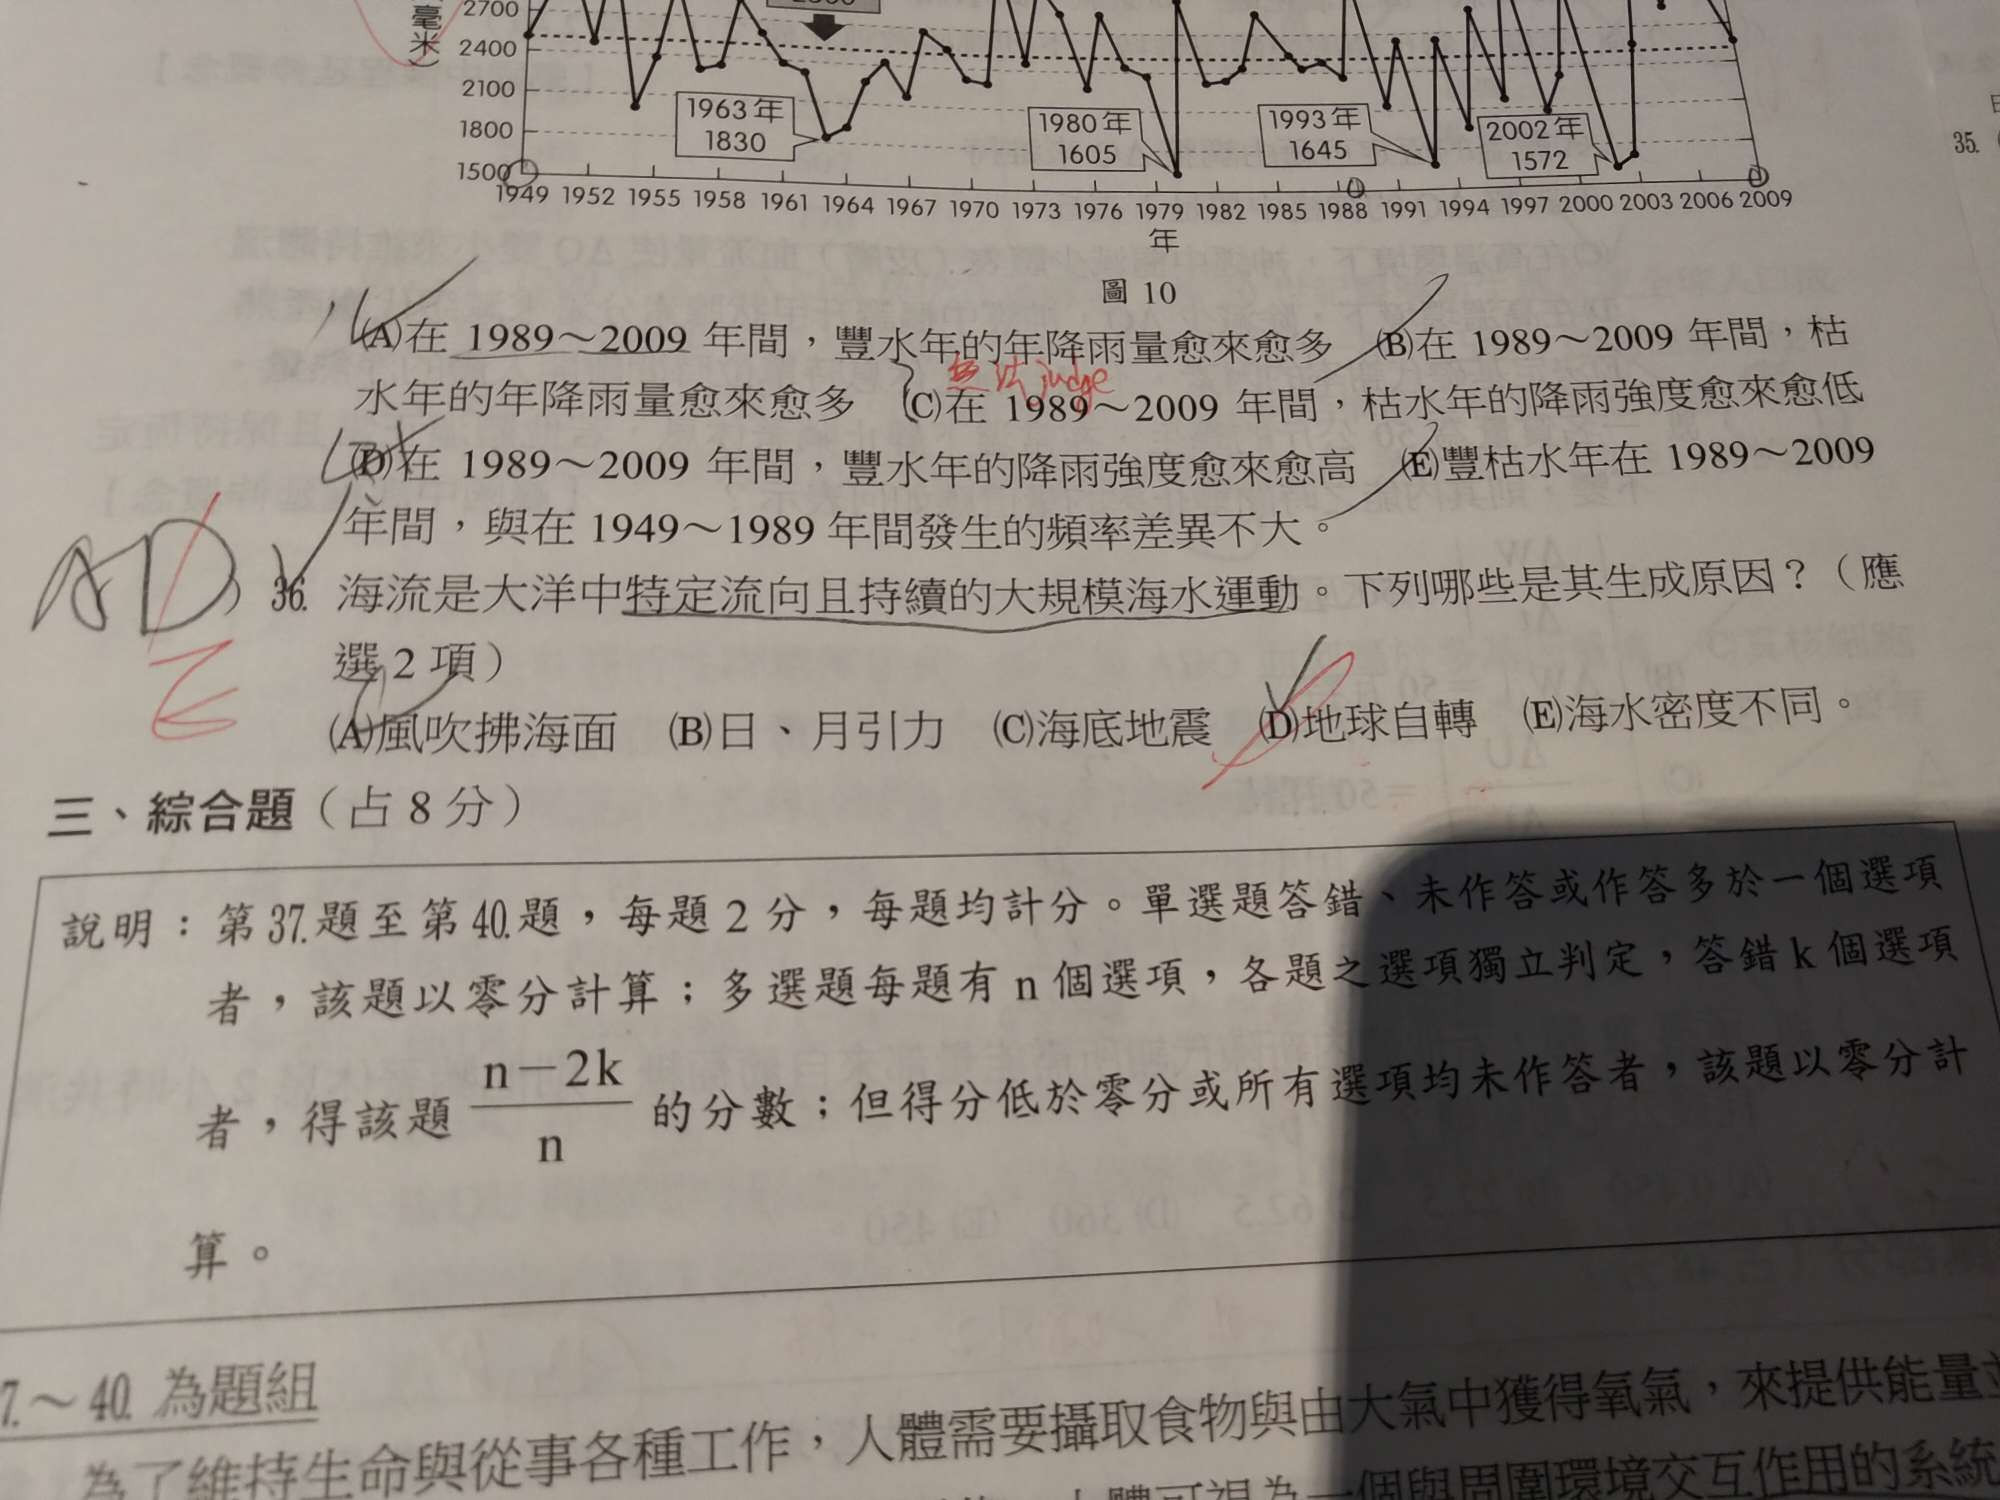 2700
毫米)
2400
2100
1800
1500
1963年
1830
1980年
1605
1993年
1645
2002年
1572
1949 1952 1955 1958 1961 1964 1967 1970 1973 1976 1979 1982 1985 1988 1991 1994 1997 2000 2003 2006 2009
年
圖 10
35.
(A)在 1989～2009 年間，豐水年的年降雨量愈來愈多 (B)在 1989～2009 年間，枯
無法judge
水年的年降雨量愈來愈多 (C)在 1989～2009 年間，枯水年的降雨強度愈來愈低
(D)在 1989～2009 年間，豐水年的降雨強度愈來愈高 (E)豐枯水年在 1989～2009
年間，與在 1949～1989 年間發生的頻率差異不大。
AD
E
) 36. 海流是大洋中特定流向且持續的大規模海水運動。下列哪些是其生成原因？（應
選 2 項）
(A)風吹拂海面 (B)日、月引力 (C)海底地震 (D)地球自轉 (E)海水密度不同。
三、綜合題（占 8 分）
說明：第37.題至第40.題，每題 2 分，每題均計分。單選題答錯、未作答或作答多於一個選項
者，該題以零分計算；多選題每題有 n 個選項，各題之選項獨立判定，答錯 k 個選項
者，得該題 n－2k / n 的分數；但得分低於零分或所有選項均未作答者，該題以零分計
算。
7.～40. 為題組
為了維持生命與從事各種工作，人體需要攝取食物與由大氣中獲得氧氣，來提供能量
人體可視為一個與周圍環境交互作用的系統